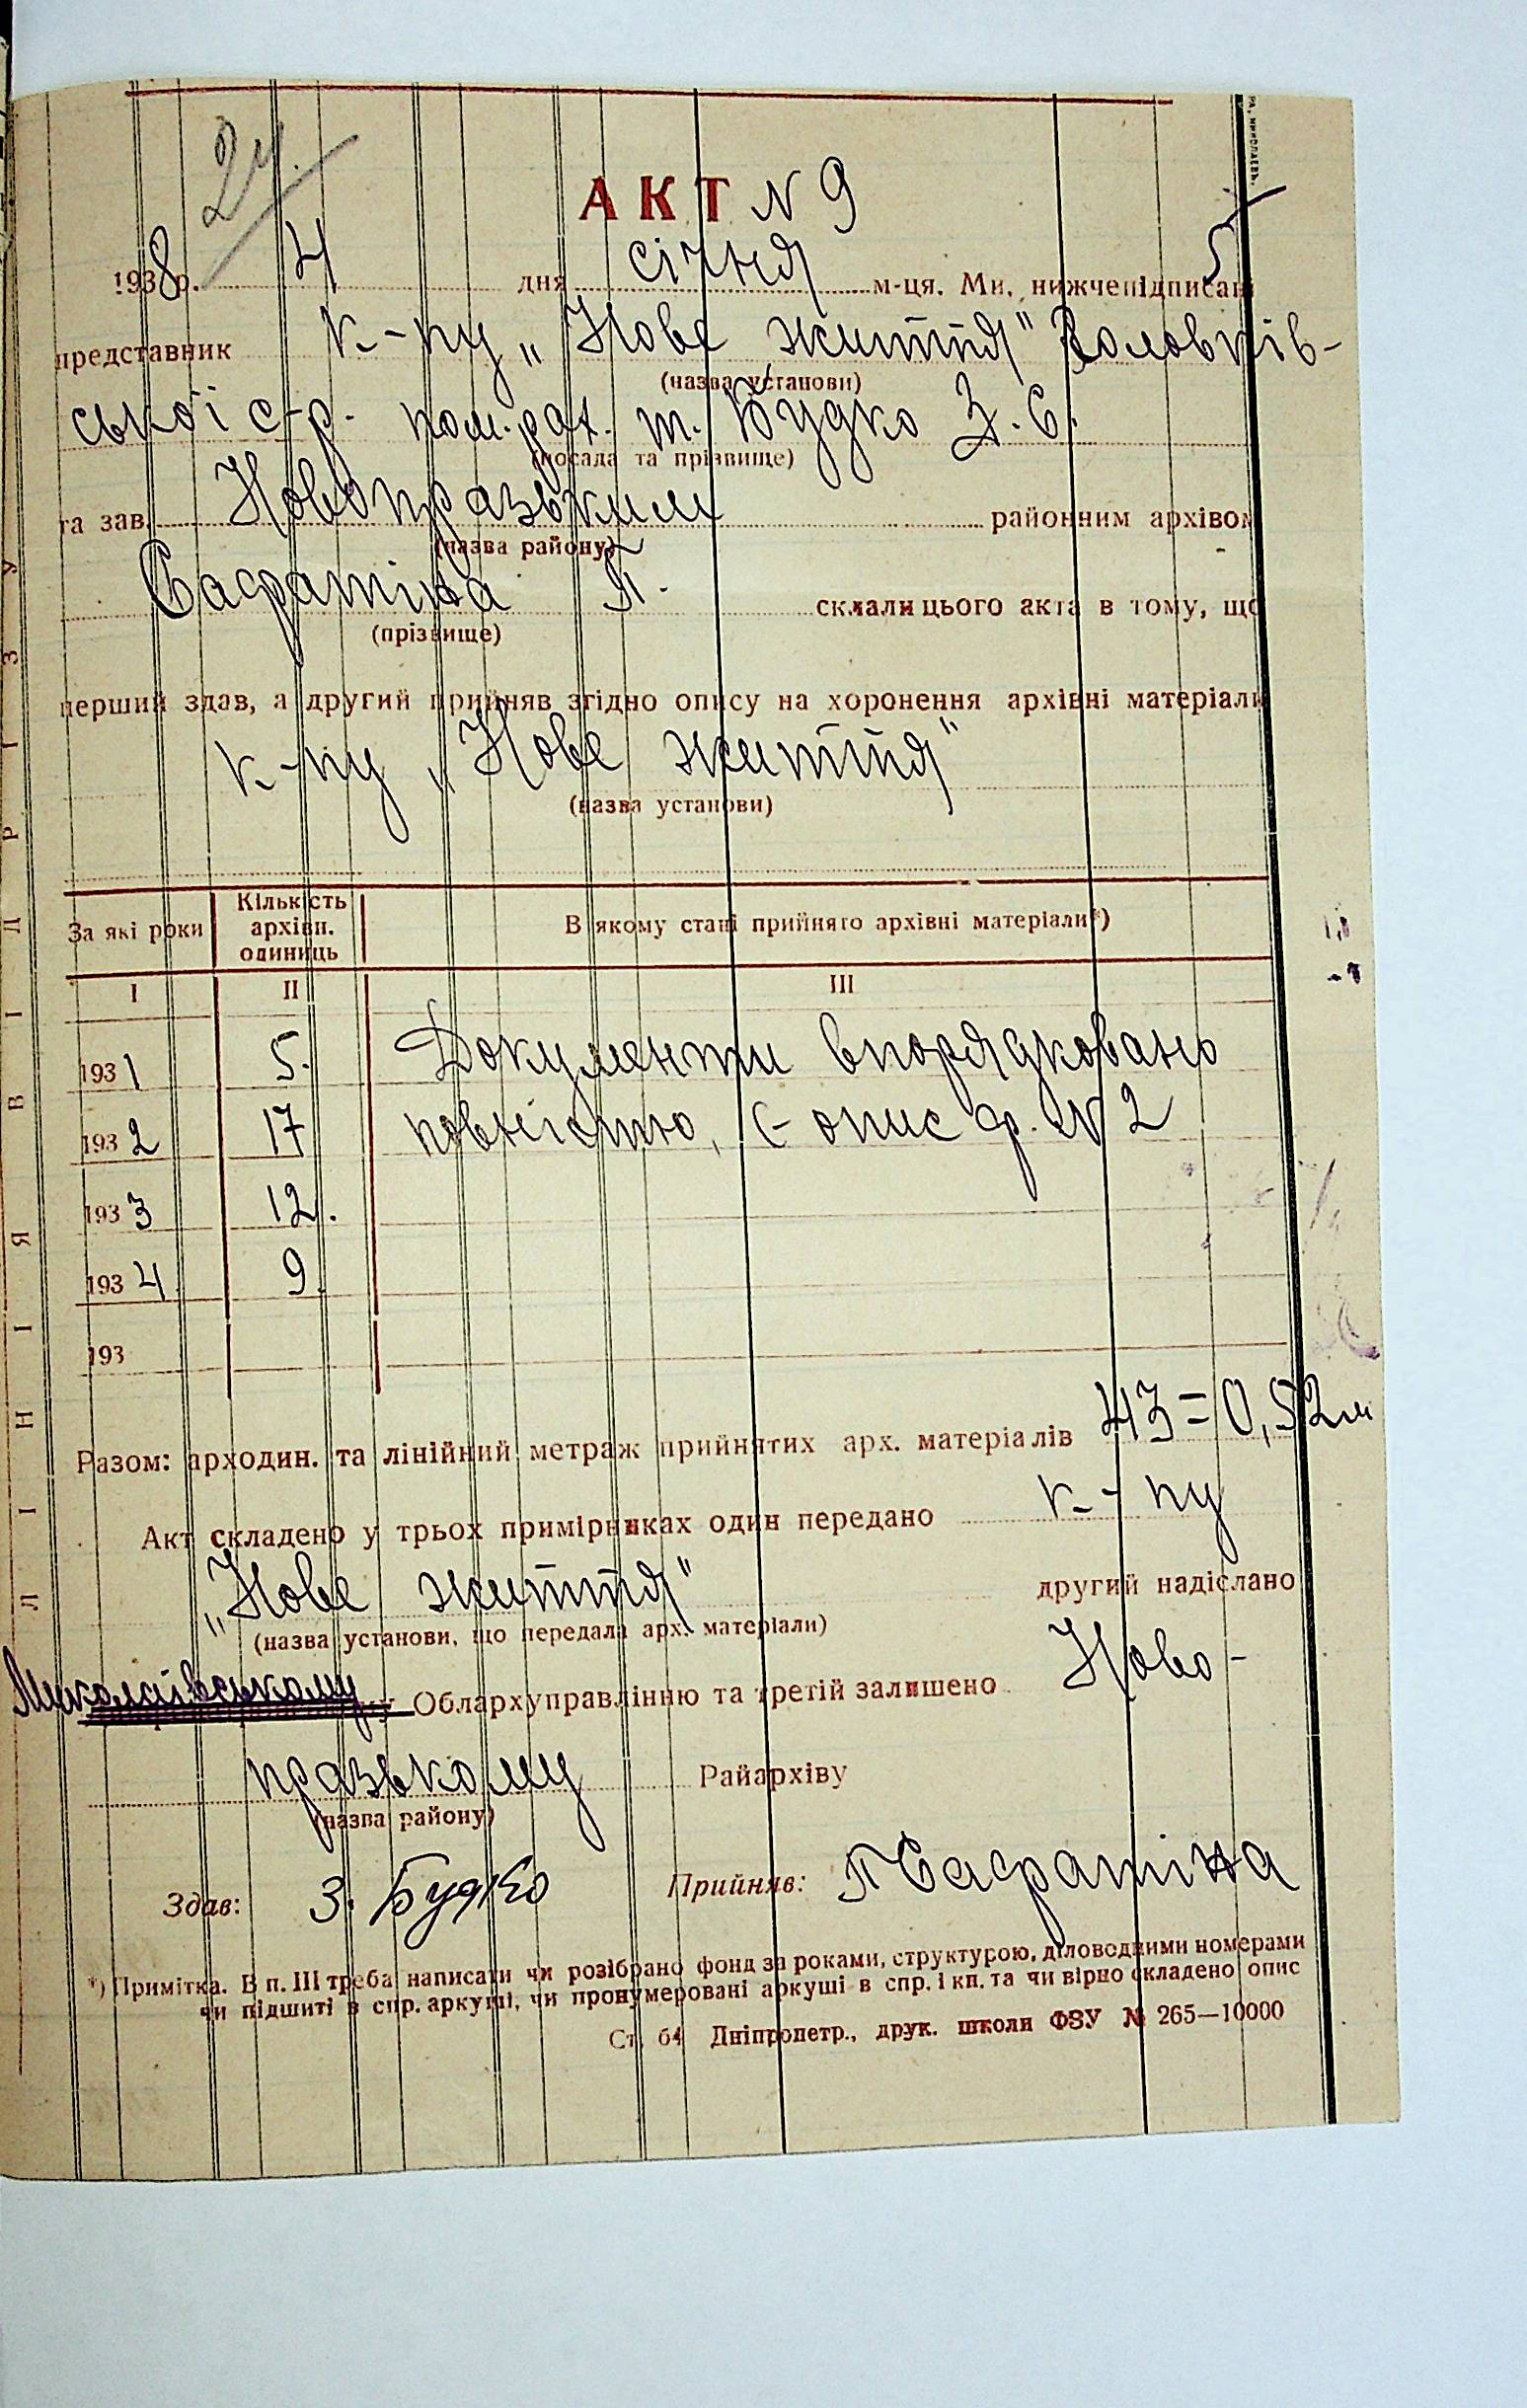 24.
АКТ N 9
5
1938 р. 4 дня січня м-ця. Ми, нижчепідписані
представник к-пу „Нове життя"
(назва установи)
ської с-р. пом. рах. т. Будко З. Є.
(посада та прізвище)
та зав. Новопразьким районним архівом
(назва району)
Сафратіна П. склали цього акта в тому, що
(прізвище)
перший здав, а другий прийняв згідно опису на хоронення архівні матеріали
к-пу „Нове життя"
(назва установи)
За які роки Кількість архівн. одиниць В якому стані прийнято архівні матеріали*)
I II III
1931 5. Документи впорядковано
1932 17 повністю, є опис ф. N 2
1933 12.
1934 9.
193
Разом: арходин. та лінійний метраж прийнятих арх. матеріалів 43=0,52м
Акт складено у трьох примірниках один передано к-пу
„Нове життя" другий надіслано
(назва установи, що передала арх. матеріали)
Миколаївському Облархуправлінню та третій залишено Ново-
празькому Райархіву
(назва району)
Здав: З. Будко Прийняв: П Сафратіна
*) Примітка. В п. III треба написати чи розібрано фонд за роками, структурою, діловодними номерами
чи підшиті в спр. аркуші, чи пронумеровані аркуші в спр. і кн. та чи вірно складено опис
Ст. б4 Дніпропетр., друк. школи ФЗУ № 265—10000